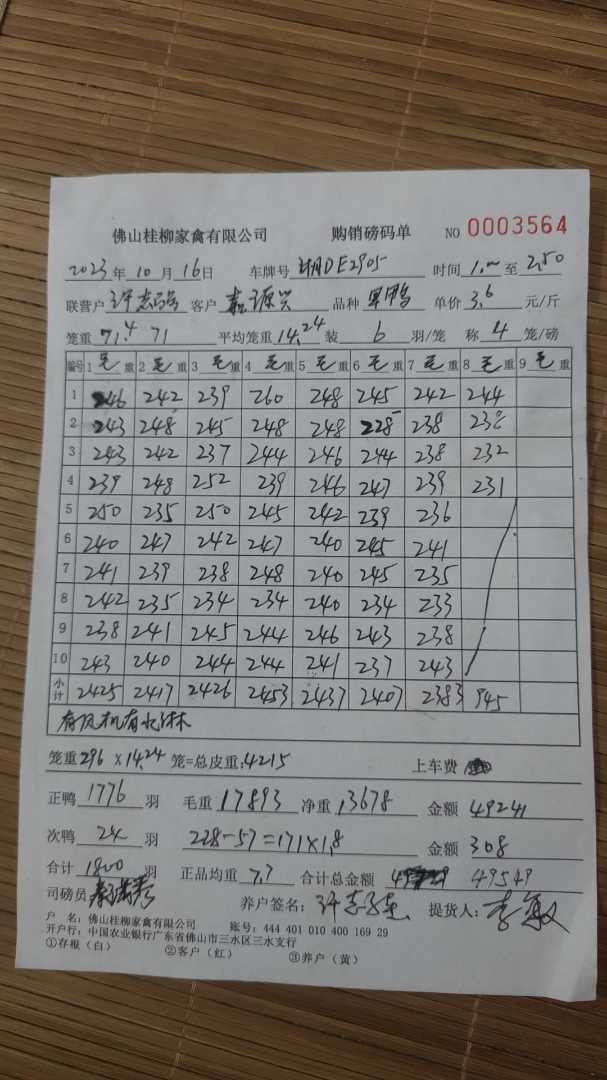 佛山桂柳家禽有限公司 购销磅码单 NO 0003564
2023年10月16日 车牌号 DE2905 时间 1.00 至 2.50
联营户 许志强 客户 源兴 品种 单价 3.6 元/斤
笼重 71.4 71 平均笼重 14.24 装 6 羽/笼 称 4 笼/磅
编号 1毛重 2毛重 3毛重 4毛重 5毛重 6毛重 7毛重 8毛重 9毛重
1 246 242 239 260 248 245 242 244
2 243 248 245 248 248 228 238 238
3 243 242 237 244 246 244 238 232
4 239 248 252 239 246 247 239 231
5 250 235 250 245 242 239 236
6 240 247 242 247 240 245 241
7 241 239 238 248 240 245 235
8 242 235 234 234 240 234 233
9 238 241 245 244 246 243 238
10 243 240 244 244 241 237 243
小计 2425 2417 2426 2453 2437 2407 2383 945
有风机有水淋
笼重 296 × 14.24 笼=总皮重: 4215 上车费
正鸭 1776 羽 毛重 17893 净重 13678 金额 49241
次鸭 24 羽 228-57=171×1.8 金额 308
合计 1800 羽 正品均重 7.7 合计总金额 49549
司磅员 养户签名: 许志强 提货人: 李敏
户 名: 佛山桂柳家禽有限公司 账号: 444 401 010 400 169 29
开户行: 中国农业银行广东省佛山市三水区三水支行
①存根（白） ②客户（红） ③养户（黄）